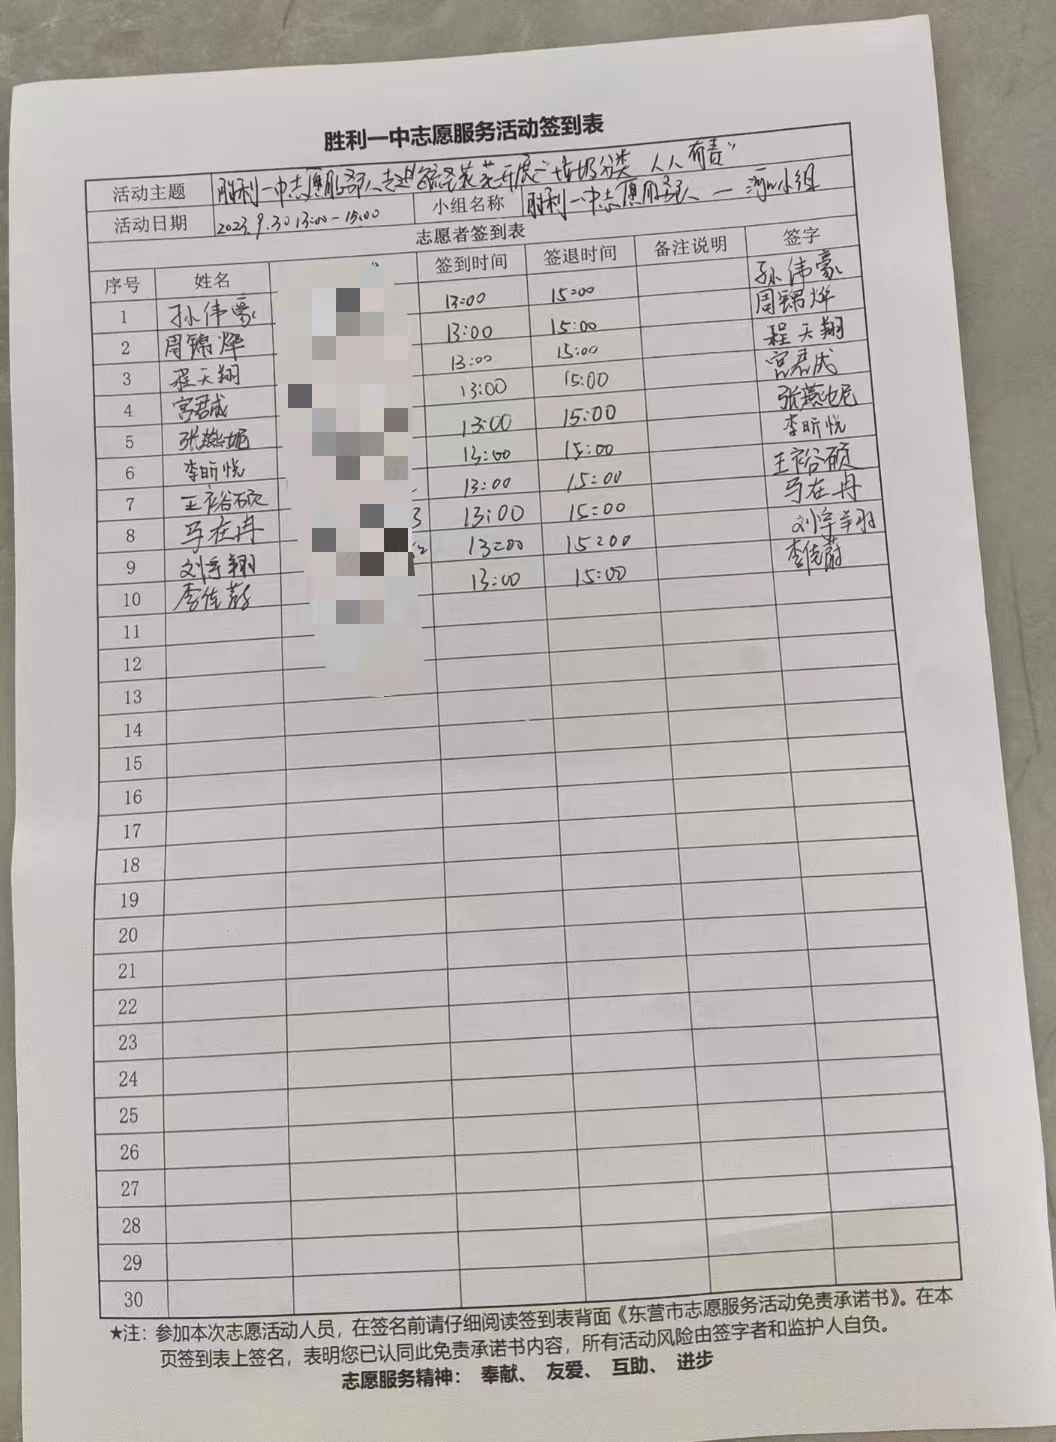 胜利一中志愿服务活动签到表
活动主题 胜利一中志愿服务队走进 开展"垃圾分类 人人有责"
活动日期 2023.9.30 13:00-15:00 小组名称 胜利一中志愿服务队 — 小组
志愿者签到表
序号 姓名 签到时间 签退时间 备注说明 签字
1 孙伟豪 13:00 15:00 孙伟豪
2 周锦烨 13:00 15:00 周锦烨
3 程天翔 13:00 15:00 程天翔
4 宫君成 13:00 15:00 宫君成
5 张燕妮 13:00 15:00 张燕妮
6 李昕悦 13:00 15:00 李昕悦
7 王裕硕 13:00 15:00 王裕硕
8 马在冉 13:00 15:00 马在冉
9 刘宇翔 13:00 15:00 刘宇翔
10 李佳蔚 13:00 15:00 李佳蔚
11
12
13
14
15
16
17
18
19
20
21
22
23
24
25
26
27
28
29
30
★注：参加本次志愿活动人员，在签名前请仔细阅读签到表背面《东营市志愿服务活动免责承诺书》。在本
页签到表上签名，表明您已认同此免责承诺书内容，所有活动风险由签字者和监护人自负。
志愿服务精神： 奉献、 友爱、 互助、 进步